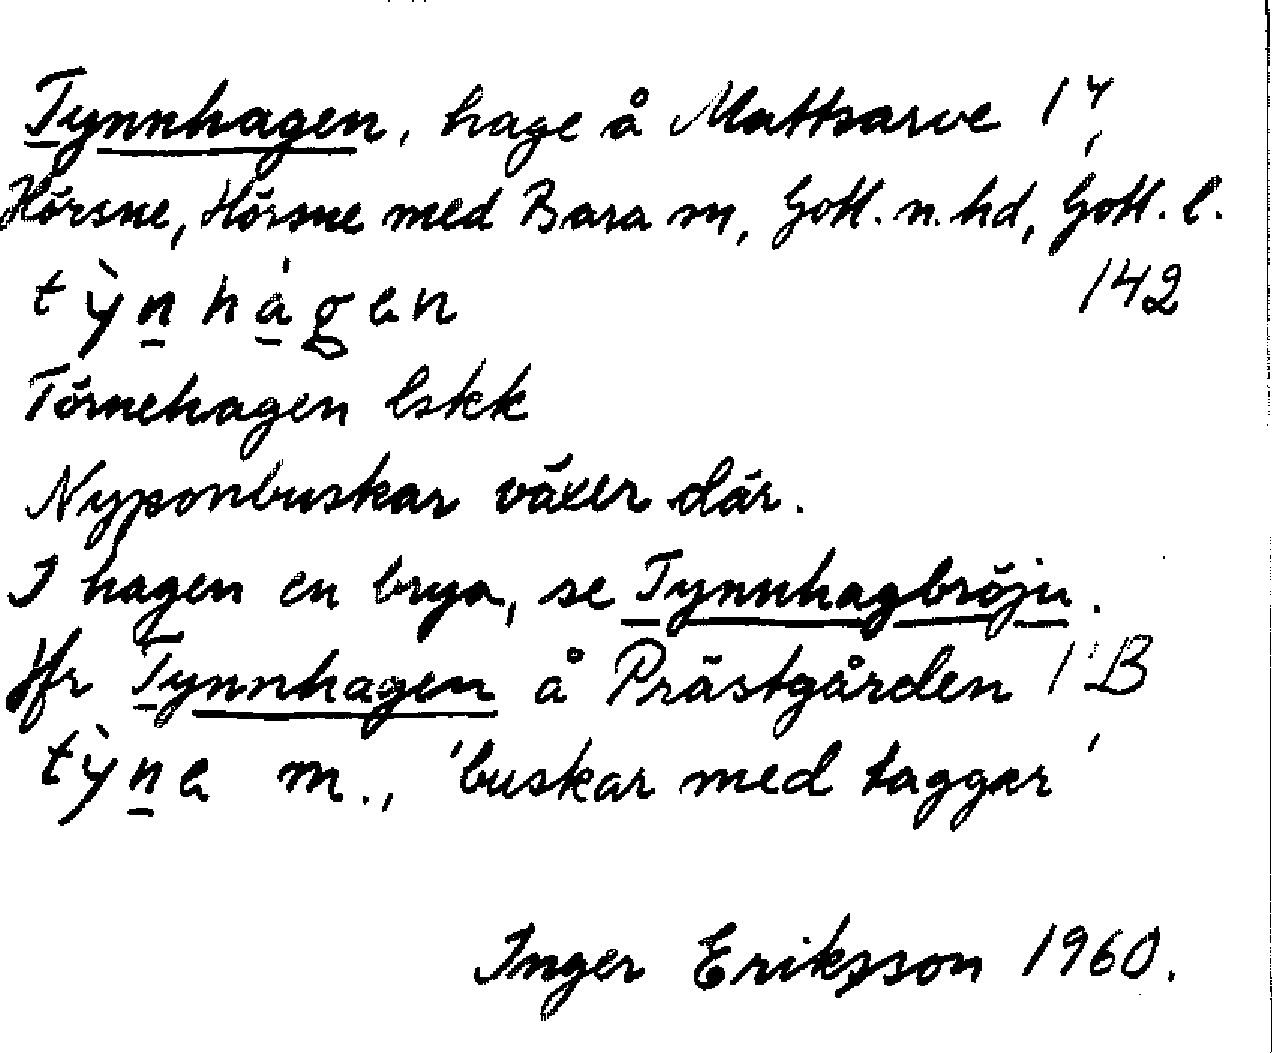 Tynnhagen, hage å Mattsarve 1⁴,
Hörsne, Hörsne med Bara sn, Gotl. n. hd, Gotl. l.
tỳn̲há̲gen 142
Törnehagen Eskk
Nyponbuskar växer där.
I hagen en brya, se Tynnhagbröju.
Jfr Tynnhagen å Prästgården 1¹B
tỳn̲e m., 'buskar med taggar'
Inger Eriksson 1960.